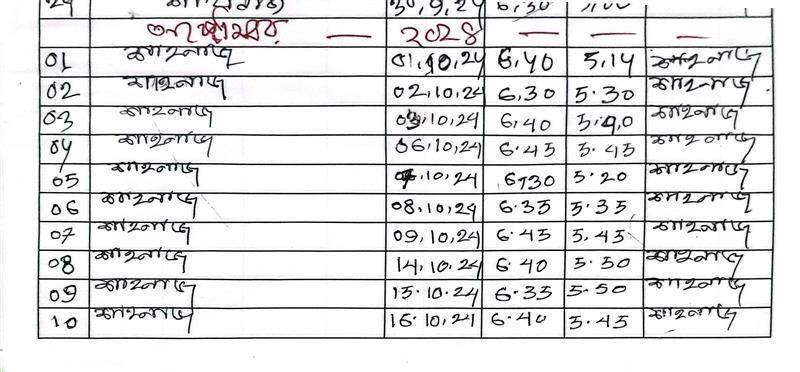 30,9,24 6,30
অক্টোবর — ২০২৪ — — —
01 শাহনাজ 01,10,24 6,40 5,14 শাহনাজ
02 শাহনাজ 02,10,24 6,30 5.30 শাহনাজ
03 শাহনাজ 03,10,24 6,40 5.40 শাহনাজ
04 শাহনাজ 06,10,24 6.45 5.45 শাহনাজ
05 শাহনাজ 10,24 6,30 5.20 শাহনাজ
06 শাহনাজ 08,10,24 6.35 5.35 শাহনাজ
07 শাহনাজ 09,10,24 6.45 5.45 শাহনাজ
08 শাহনাজ 14,10,24 6.40 5.50 শাহনাজ
09 শাহনাজ 15.10.24 6.35 5.50 শাহনাজ
10 শাহনাজ 16.10,24 6.40 5.45 শাহনাজ